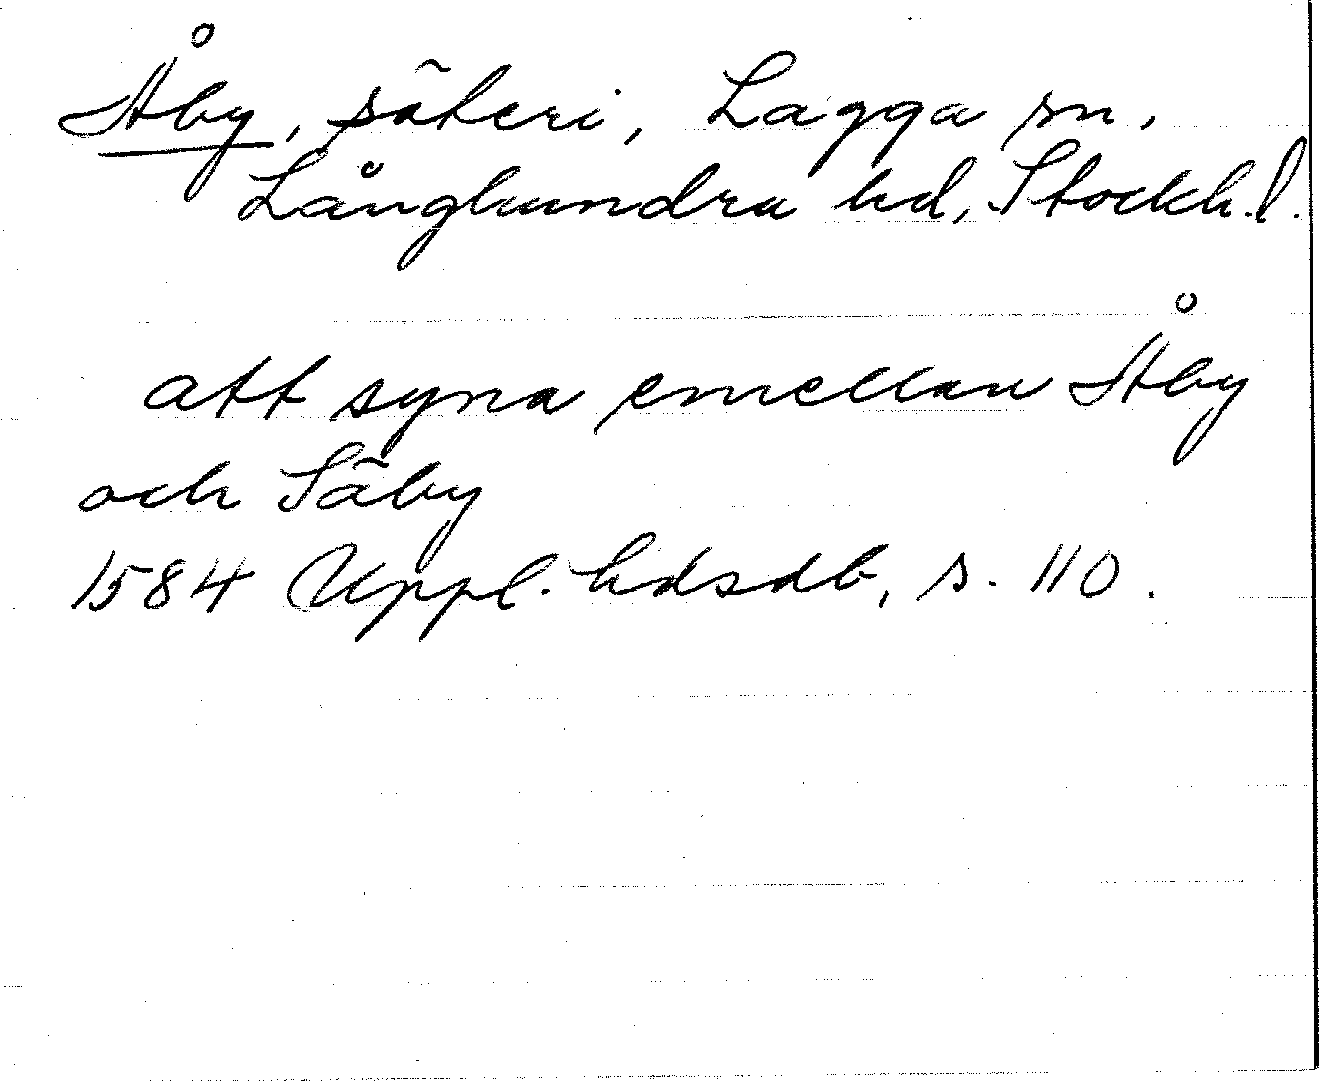 Åby, säteri, Lagga sn,
Långhundra hd, Stockh. l.
att syna emellan Åby
och Säby
1584 Uppl. hdsdb, s. 110.